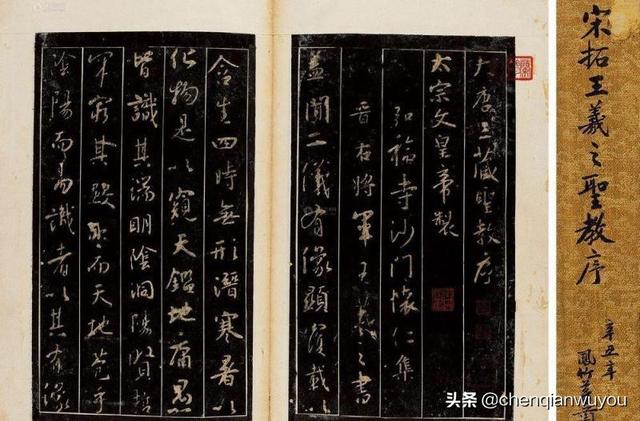 宋拓王羲之聖教序
辛丑年
鳳竹
大唐三藏聖教序
太宗文皇帝製
弘福寺沙門懷仁集
晉右將軍王羲之書
蓋聞二儀有像顯覆載以
含生四時無形潛寒暑以
化物是以窺天鑑地庸愚
皆識其端明陰洞陽賢哲
罕窮其數然而天地苞乎
陰陽而易識者以其有像
头条 @chenqianwuyou